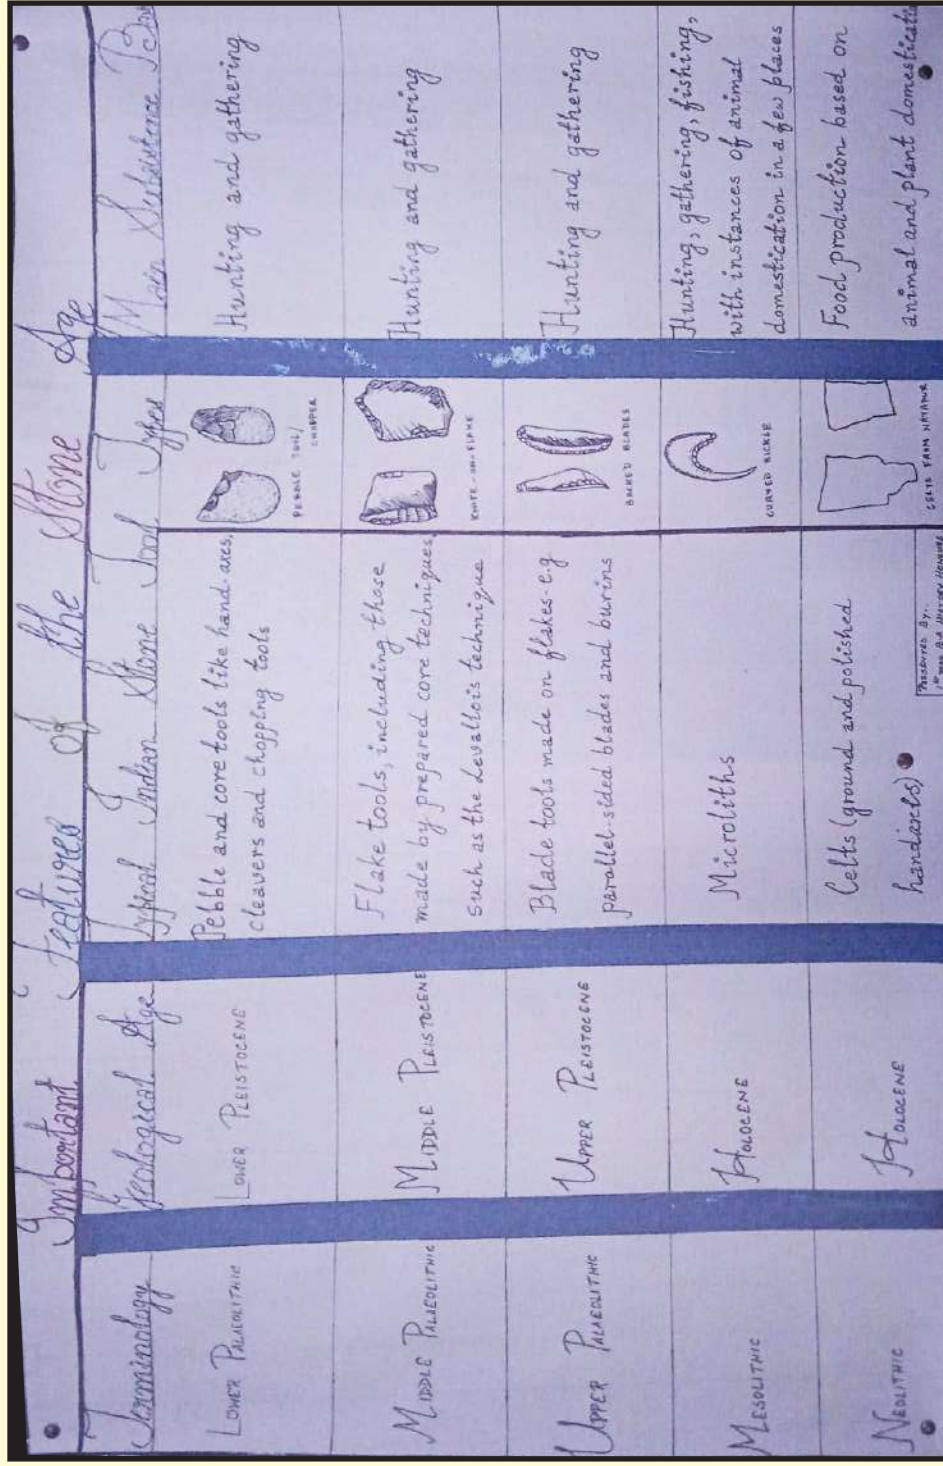 Important Features of the Stone Age
Terminology
Geological Age
Typical Indian Stone Tool Types
Main Subsistence
LOWER PALAEOLITHIC
LOWER PLEISTOCENE
Pebble and core tools like hand-axes,
cleavers and chopping tools
PEBBLE TOOL/
CHOPPER
Hunting and gathering
MIDDLE PALAEOLITHIC
MIDDLE PLEISTOCENE
Flake tools, including those
made by prepared core techniques,
such as the Levallois technique
KNIFE-ON-FLAKE
Hunting and gathering
UPPER PALAEOLITHIC
UPPER PLEISTOCENE
Blade tools made on flakes-e.g.
parallel-sided blades and burins
BACKED BLADES
Hunting and gathering
MESOLITHIC
HOLOCENE
Microliths
CURVED SICKLE
Hunting, gathering, fishing,
with instances of animal
domestication in a few places
NEOLITHIC
HOLOCENE
Celts (ground and polished
handaxes)
CELTS FROM
Food production based on
animal and plant domesticati
PRESENTED BY:-